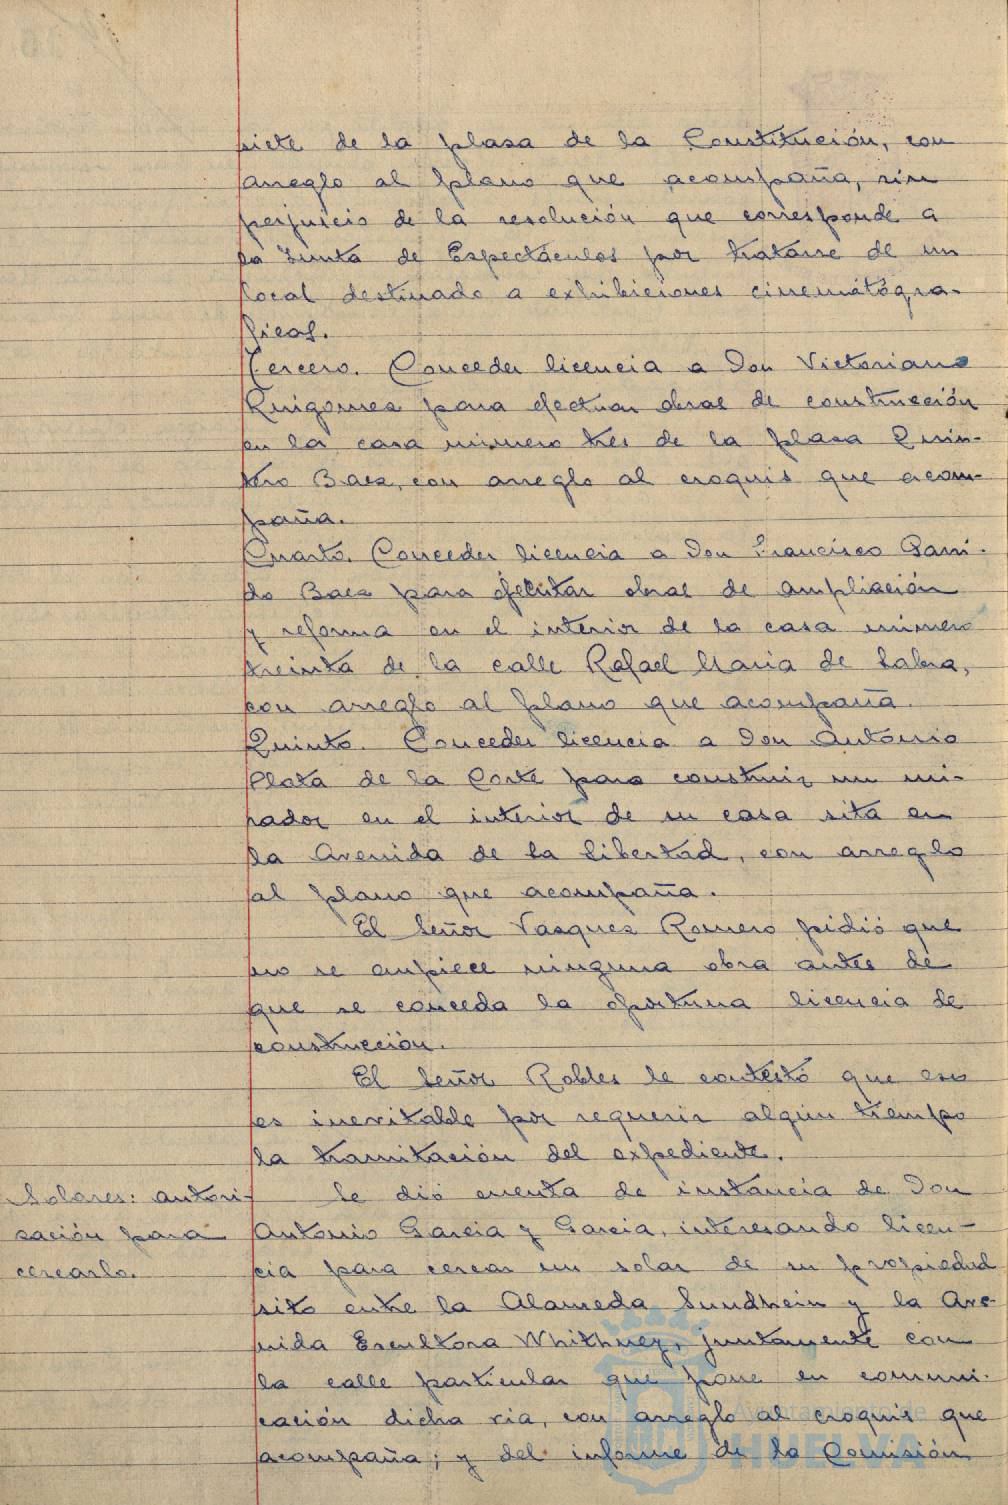 siete de la plasa de la Constitución, con
arreglo al plano que acompaña, sin
perjuicio de la resolución que corresponde a
la Junta de Espectáculos por tratarse de un
local destinado a exhibiciones cinematógra-
ficas.
Tercero. Conceder licencia a Don Victoriano
Ruigomez para efectuar obras de construcción
en la casa número tres de la plasa Quin-
tero Baez, con arreglo al croquis que acom-
paña.
Cuarto. Conceder licencia a Don Francisco Garri-
do Baez para efectuar obras de ampliación
y reforma en el interior de la casa número
treinta de la calle Rafael Maria de Labra,
con arreglo al plano que acompaña.
Quinto. Conceder licencia a Don Antonio
Plata de la Corte para construir un mi-
rador en el interior de su casa sita en
la Avenida de la Libertad, con arreglo
al plano que acompaña.
El Señor Vasquez Romero pidió que
no se empiece ninguna obra antes de
que se conceda la oportuna licencia de
construcción.
El Señor Robles le contestó que eso
es inevitable por requerir algún tiempo
la tramitación del expediente.
Solares: autori-
sación para
cercarlo.
Se dió cuenta de instancia de Don
Antonio Garcia y Garcia, interesando licen-
cia para cercar un solar de su propiedad
sito entre la Alameda Sundhein y la Ave-
nida Escultora Whithney, juntamente con
la calle particular que pone en comuni-
cación dicha via, con arreglo al croquis que
acompaña; y del informe de la Comisión
Ayuntamiento de
HUELVA